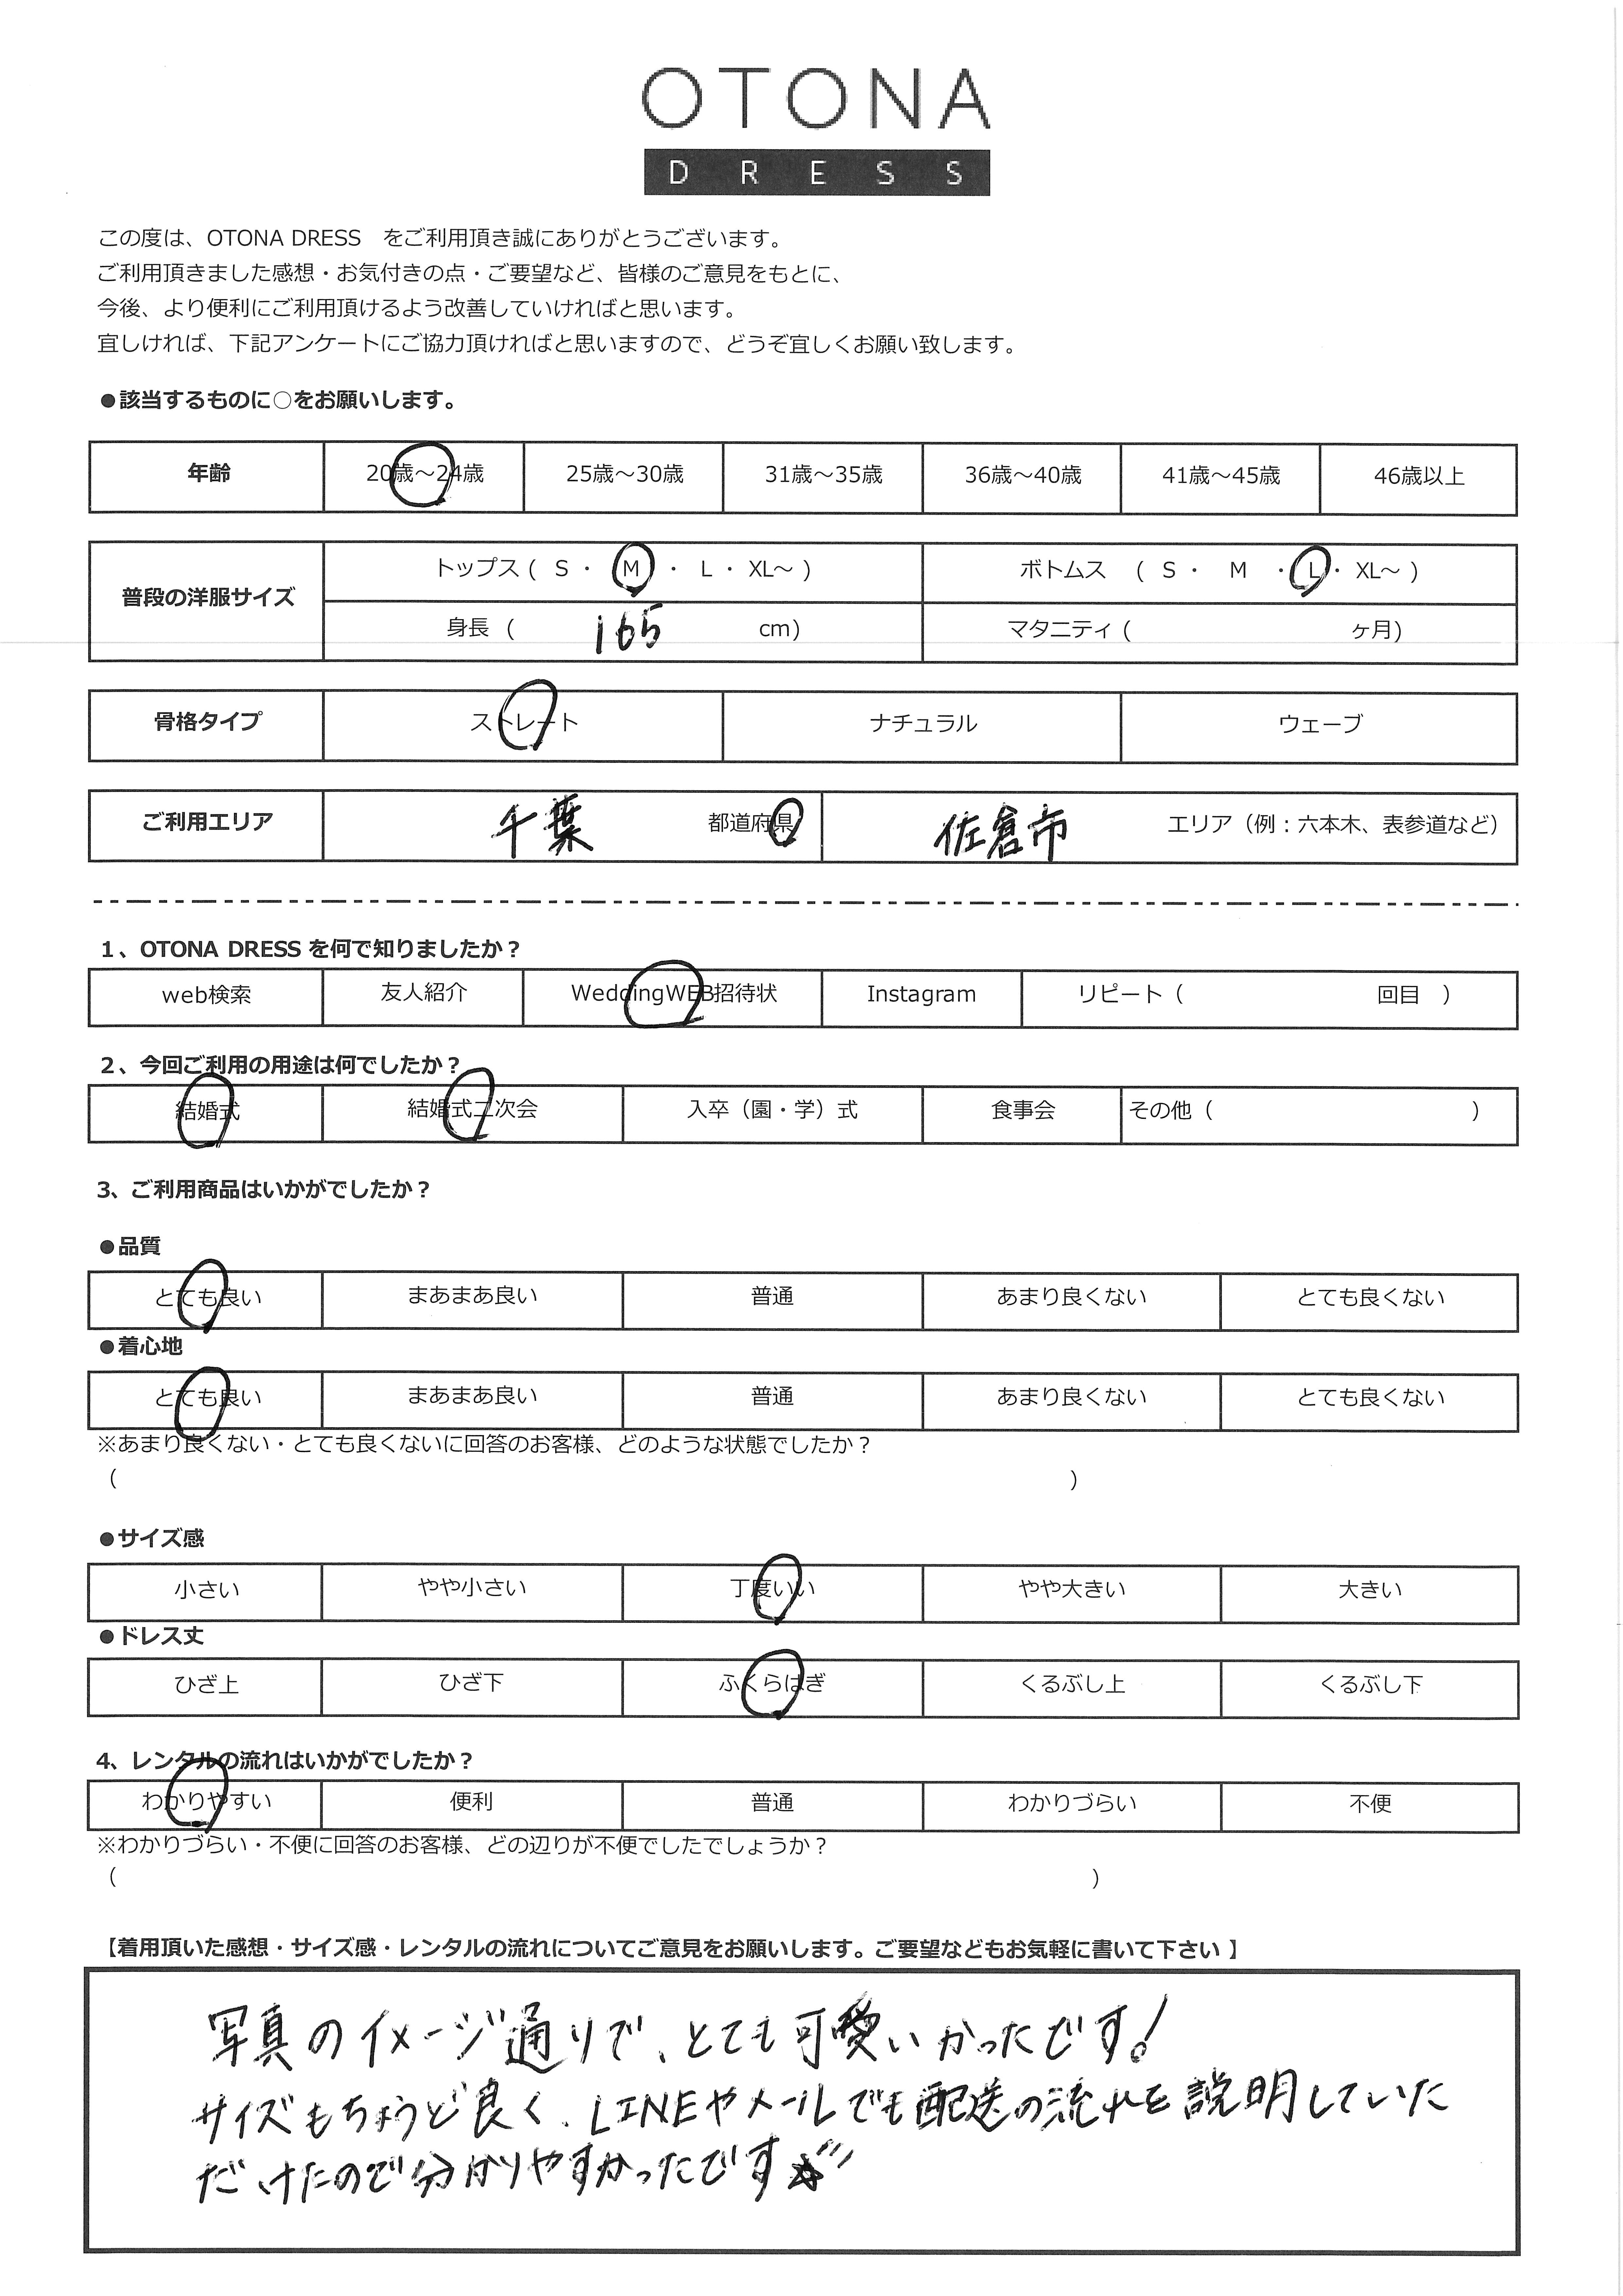 OTONA
DRESS
この度は、OTONA DRESS　をご利用頂き誠にありがとうございます。
ご利用頂きました感想・お気付きの点・ご要望など、皆様のご意見をもとに、
今後、より便利にご利用頂けるよう改善していければと思います。
宜しければ、下記アンケートにご協力頂ければと思いますので、どうぞ宜しくお願い致します。
●該当するものに○をお願いします。
年齢 20歳～24歳 25歳～30歳 31歳～35歳 36歳～40歳 41歳～45歳 46歳以上
普段の洋服サイズ トップス ( S ・ M ・ L ・ XL～ ) ボトムス ( S ・ M ・ L ・ XL～ )
身長 ( 165 cm) マタニティ ( ヶ月)
骨格タイプ ストレート ナチュラル ウェーブ
ご利用エリア 千葉 都道府県 佐倉市 エリア（例：六本木、表参道など）
1、OTONA DRESS を何で知りましたか？
web検索 友人紹介 WeddingWEB招待状 Instagram リピート（ 回目 ）
2、今回ご利用の用途は何でしたか？
結婚式 結婚式二次会 入卒（園・学）式 食事会 その他（ ）
3、ご利用商品はいかがでしたか？
●品質
とても良い まあまあ良い 普通 あまり良くない とても良くない
●着心地
とても良い まあまあ良い 普通 あまり良くない とても良くない
※あまり良くない・とても良くないに回答のお客様、どのような状態でしたか？
（ ）
●サイズ感
小さい やや小さい 丁度いい やや大きい 大きい
●ドレス丈
ひざ上 ひざ下 ふくらはぎ くるぶし上 くるぶし下
4、レンタルの流れはいかがでしたか？
わかりやすい 便利 普通 わかりづらい 不便
※わかりづらい・不便に回答のお客様、どの辺りが不便でしたでしょうか？
（ ）
【着用頂いた感想・サイズ感・レンタルの流れについてご意見をお願いします。ご要望などもお気軽に書いて下さい 】
写真のイメージ通りで、とても可愛いかったです！
サイズもちょうど良く、LINEやメールでも配送の流れを説明していた
だけたので分かりやすかったです☆